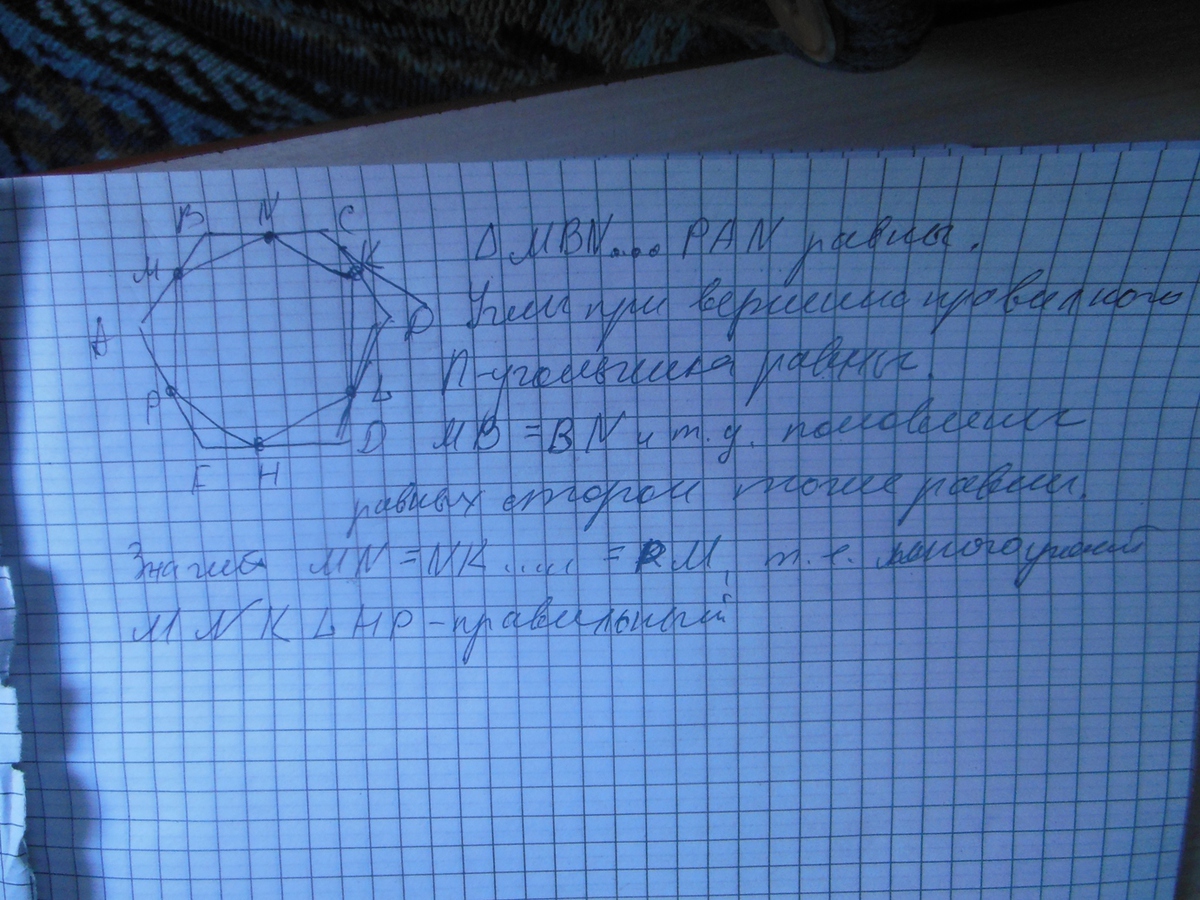 B N C
M K
A D
P L
E H D
Δ MBN.... PAN равны.
Углы при вершине правилного
n-угольника равны.
MB = BN и т.д. половины
равных сторон тоже равны.
Значит MN = NK ..... = PM, т.е.
MNKLHP - правильный